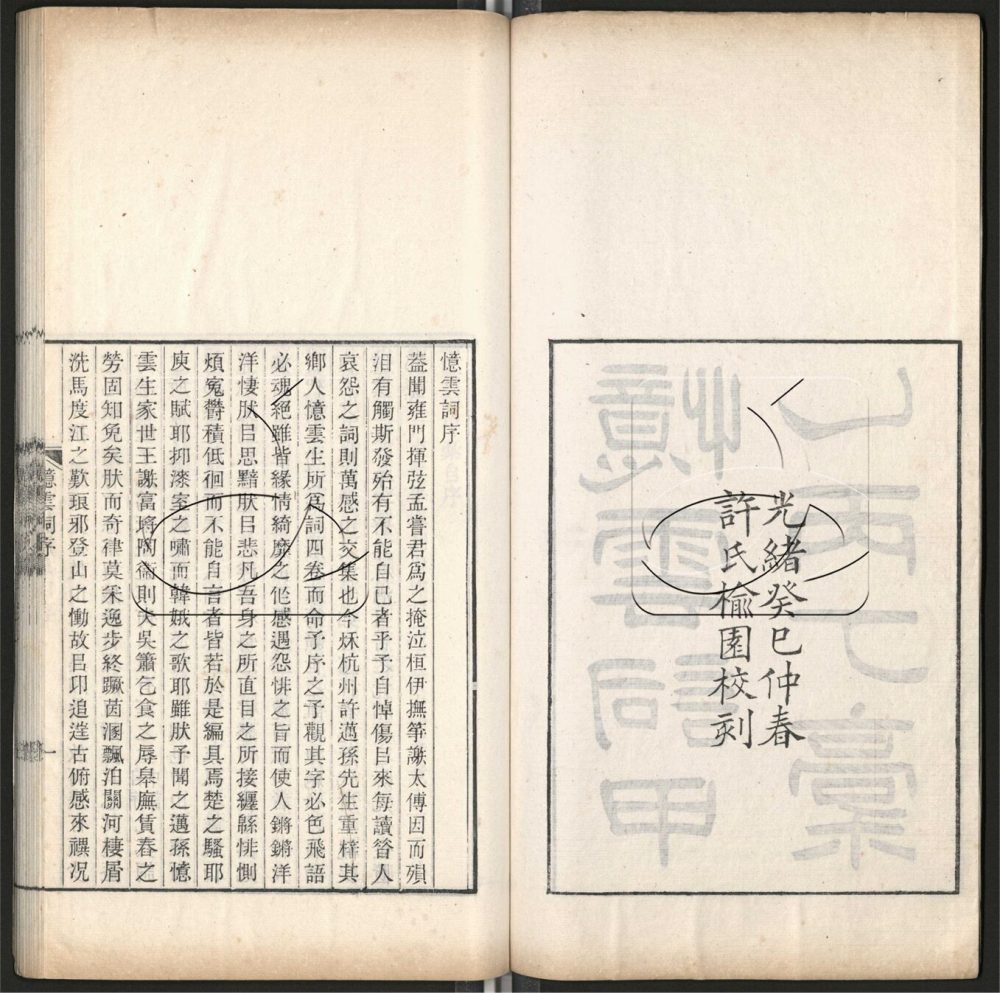 光緒癸巳仲春
許氏榆園校刻
憶雲詞序
蓋聞雍門揮弦孟嘗君爲之掩泣桓伊撫箏謝太傅因而殞
泪有觸斯發殆有不能自已者乎予自悼傷㠯來每讀昝人
哀怨之詞則萬感之交集也今秌杭州許邁孫先生重梓其
鄉人憶雲生所爲詞四卷而命予序之予觀其字必色飛語
必魂絕雖皆緣情綺靡之作感遇怨悱之旨而使人鏘鏘洋
洋悽肰㠯思黯肰㠯悲凡吾身之所直目之所接纏緜悱惻
煩冤鬱積低徊而不能自言者皆若於是編具焉楚之騷耶
庾之賦耶抑漆室之嘯而韓娥之歌耶雖肰予聞之邁孫憶
雲生家世王謝富埒陶衞則夫吳簫乞食之辱皋廡賃舂之
勞固知免矣肰而奇律莫釆逸步終蹶茵溷飄泊關河棲屑
洗馬度江之歎琅邪登山之慟故㠯卬追逹古俯感來禩况
憶雲詞序
一